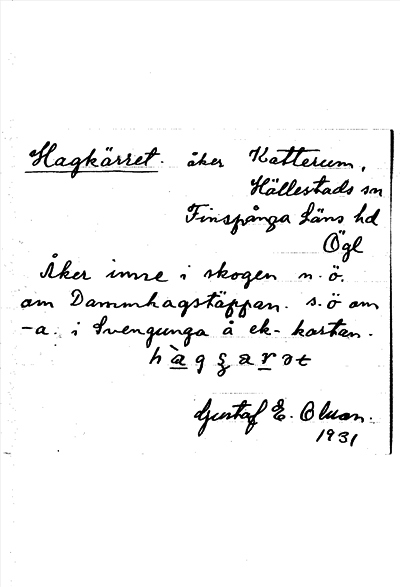 Hagkärret. åker Katterum,
Hällestads sn
Finspånga Läns hd
Ögl
Åker inne i skogen n.ö.
om Dammhagstäppan. s.ö om
-a. i Svengunga å ek-kartan.
Gustaf E. Olson.
1931